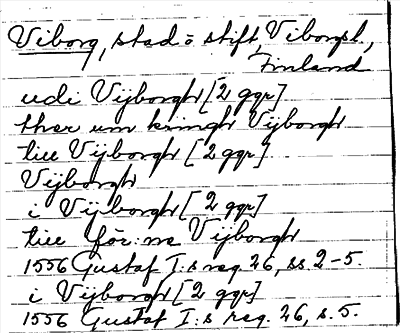 Viborg, stad o stift, Viborgsl.,
Finland
udi Vijborgh [2 ggr]
ther um kringh Vijborgh
till Vijborgh [2 ggr]
Vijborgh
i Vijborgh [2 ggr]
till för:ne Vijborgh
1556 Gustaf I:s reg. 26, ss 2-5.
i Vijborgh [2 ggr]
1556 Gustaf I:s reg. 26, s. 5.